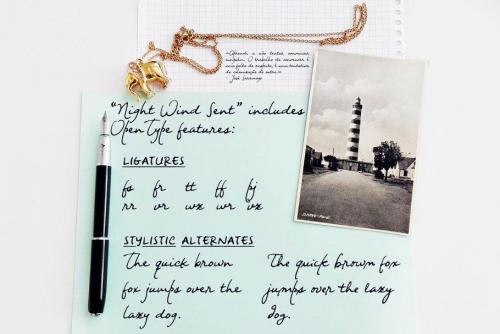 «Aprendi a não tentar convencer
ninguém. O trabalho de convencer é
uma falta de respeito, é uma tentativa
de colonização do outro.»
José Saramago
"Night Wind Sent" includes
OpenType features:
LIGATURES
fs fr tt ff fj
rr vr wx wr vx
STYLISTIC ALTERNATES
The quick brown
fox jumps over the
lazy dog.
The quick brown fox
jumps over the lazy
dog.